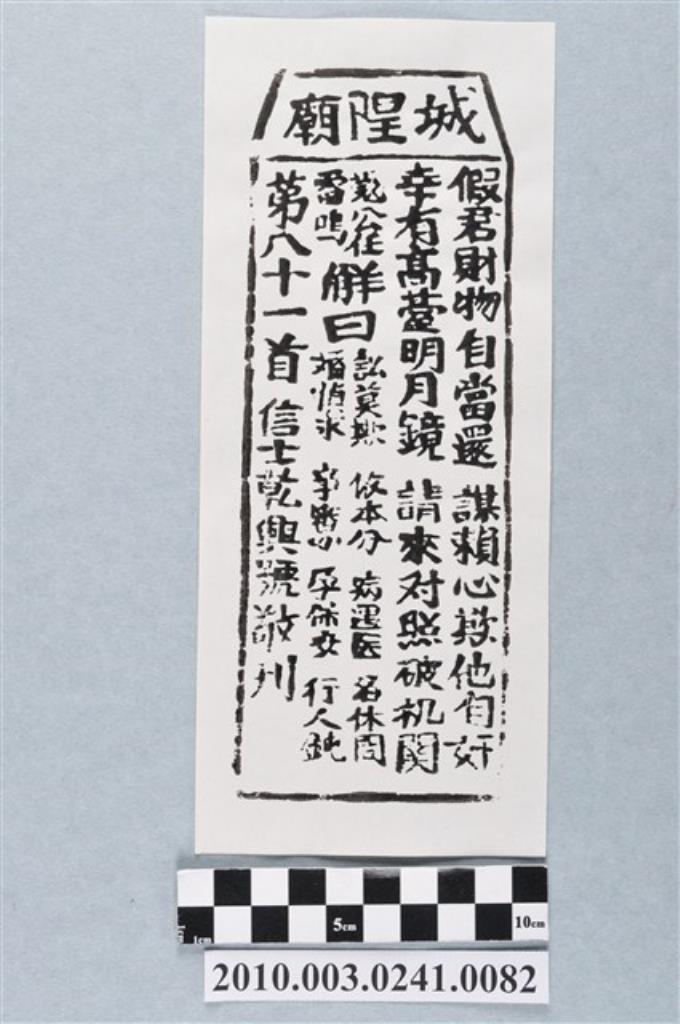 城隍廟
假君財物自當還 謀賴心欺他自奸
幸有高臺明月鏡 請來对照破机関
解曰
訟莫欺 依本分 病遇医 名休問
婚慎求 孕保安 行人鈍
雷鳴
第八十一首 信士乾興號敬刊
5cm
10cm
1cm
2010.003.0241.0082